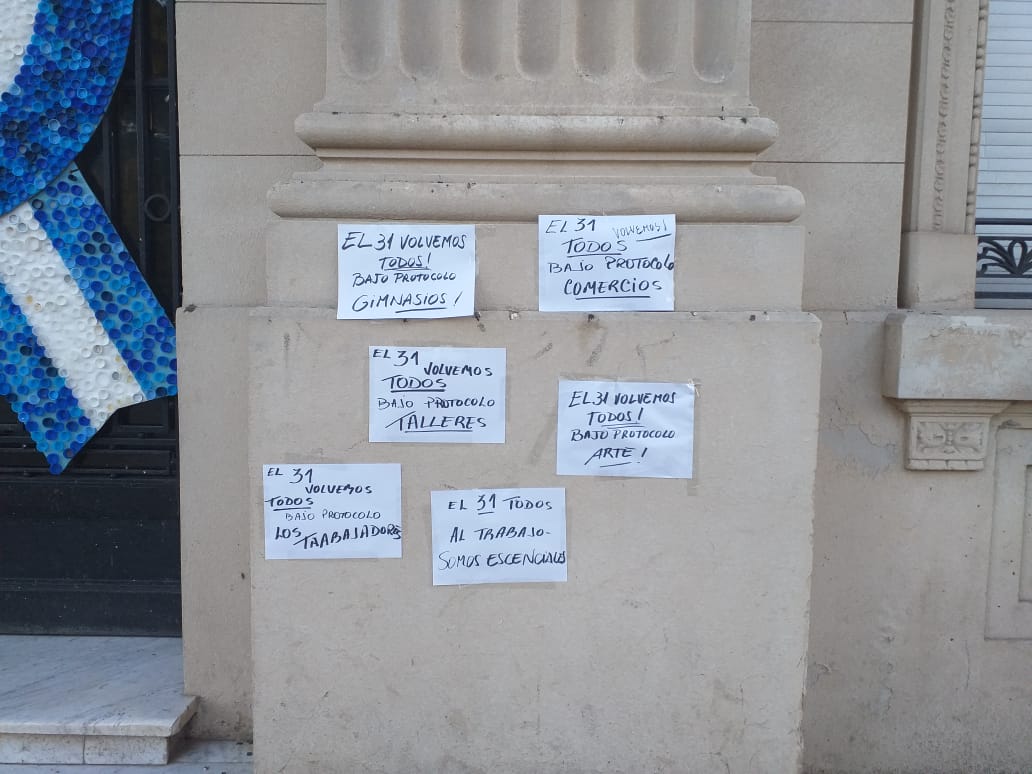 EL 31 VOLVEMOS
TODOS!
BAJO PROTOCOLO
GIMNASIOS!
EL 31 VOLVEMOS!
TODOS
BAJO PROTOCOLO
COMERCIOS
EL 31 VOLVEMOS
TODOS
BAJO PROTOCOLO
TALLERES
EL 31 VOLVEMOS
TODOS!
BAJO PROTOCOLO
ARTE!
EL 31
VOLVEMOS
TODOS
BAJO PROTOCOLO
LOS TRABAJADORES
EL 31 TODOS
AL TRABAJO-
SOMOS ESCENCIALES